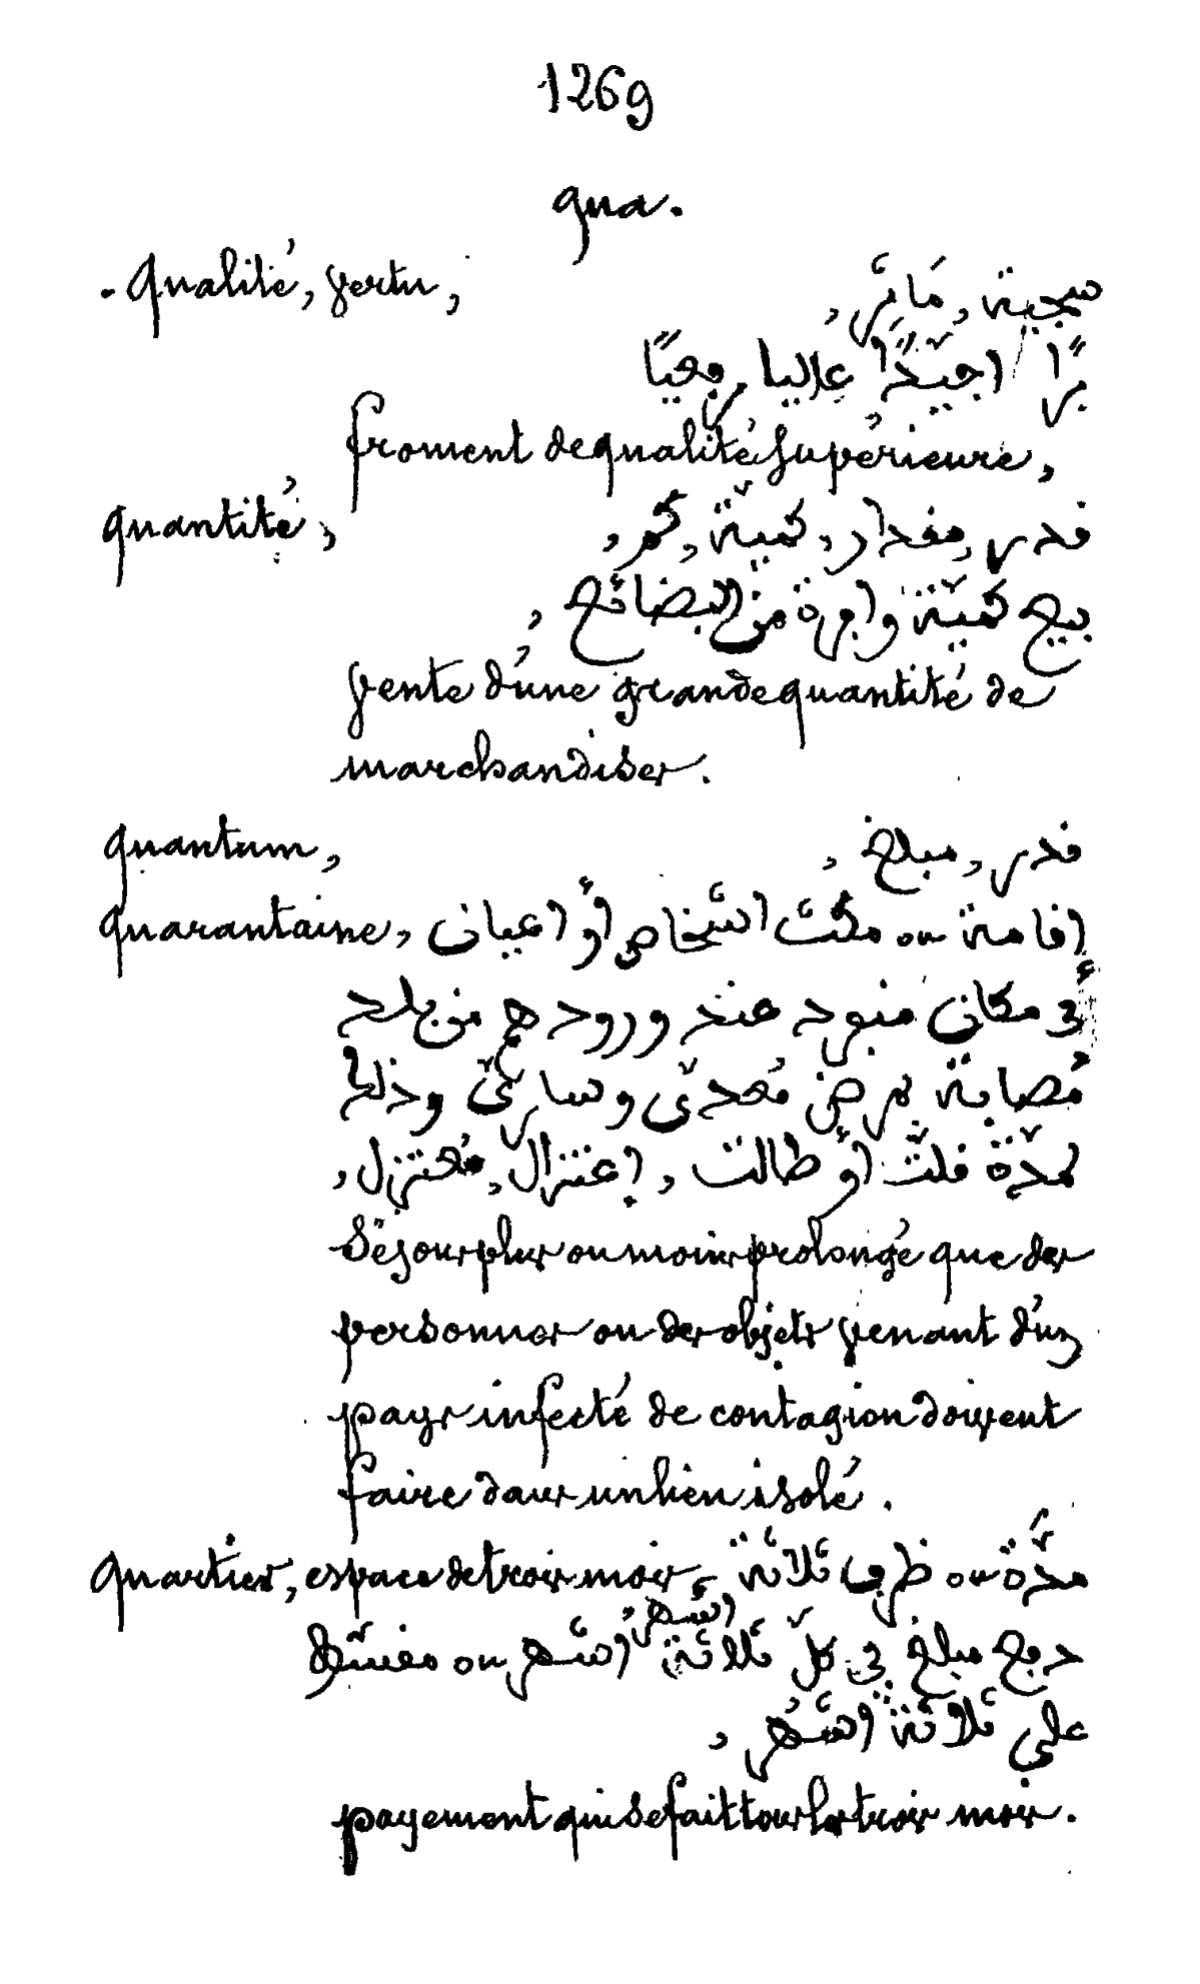 1269
qua.
. qualité, vertu, سجية, مَاثَر,
برًّا اجيّدًا عاليا رفعيًا
froment de qualité supérieure,
quantité, قدر, مقدار, كميّة, كم,
بيع كميّة وافرة من البضائع,
vente d'une grande quantité de
marchandises.
quantum, قدر, مبلغ,
quarantaine, إقامة ou مكث اشخاص أو اعيان
في مكان منفود عند ورودهم من بلد
مُصابة بمرض مُعدى وسارىّ وذلك
لمدّة قلّت أو طالت, إعتزال, مُعتزل,
Séjour plus ou moins prolongé que des
personnes ou des objets venant d'un
pays infecté de contagion doivent
faire dans un lieu isolé.
quartier, espace de trois mois, مدّة ou ظرف ثلاثة اشهر,
دفع مبلغ في كلّ ثلاثة اشهر ou مقسّط
على ثلاثة اشهُر,
payement qui se fait tous les trois mois.